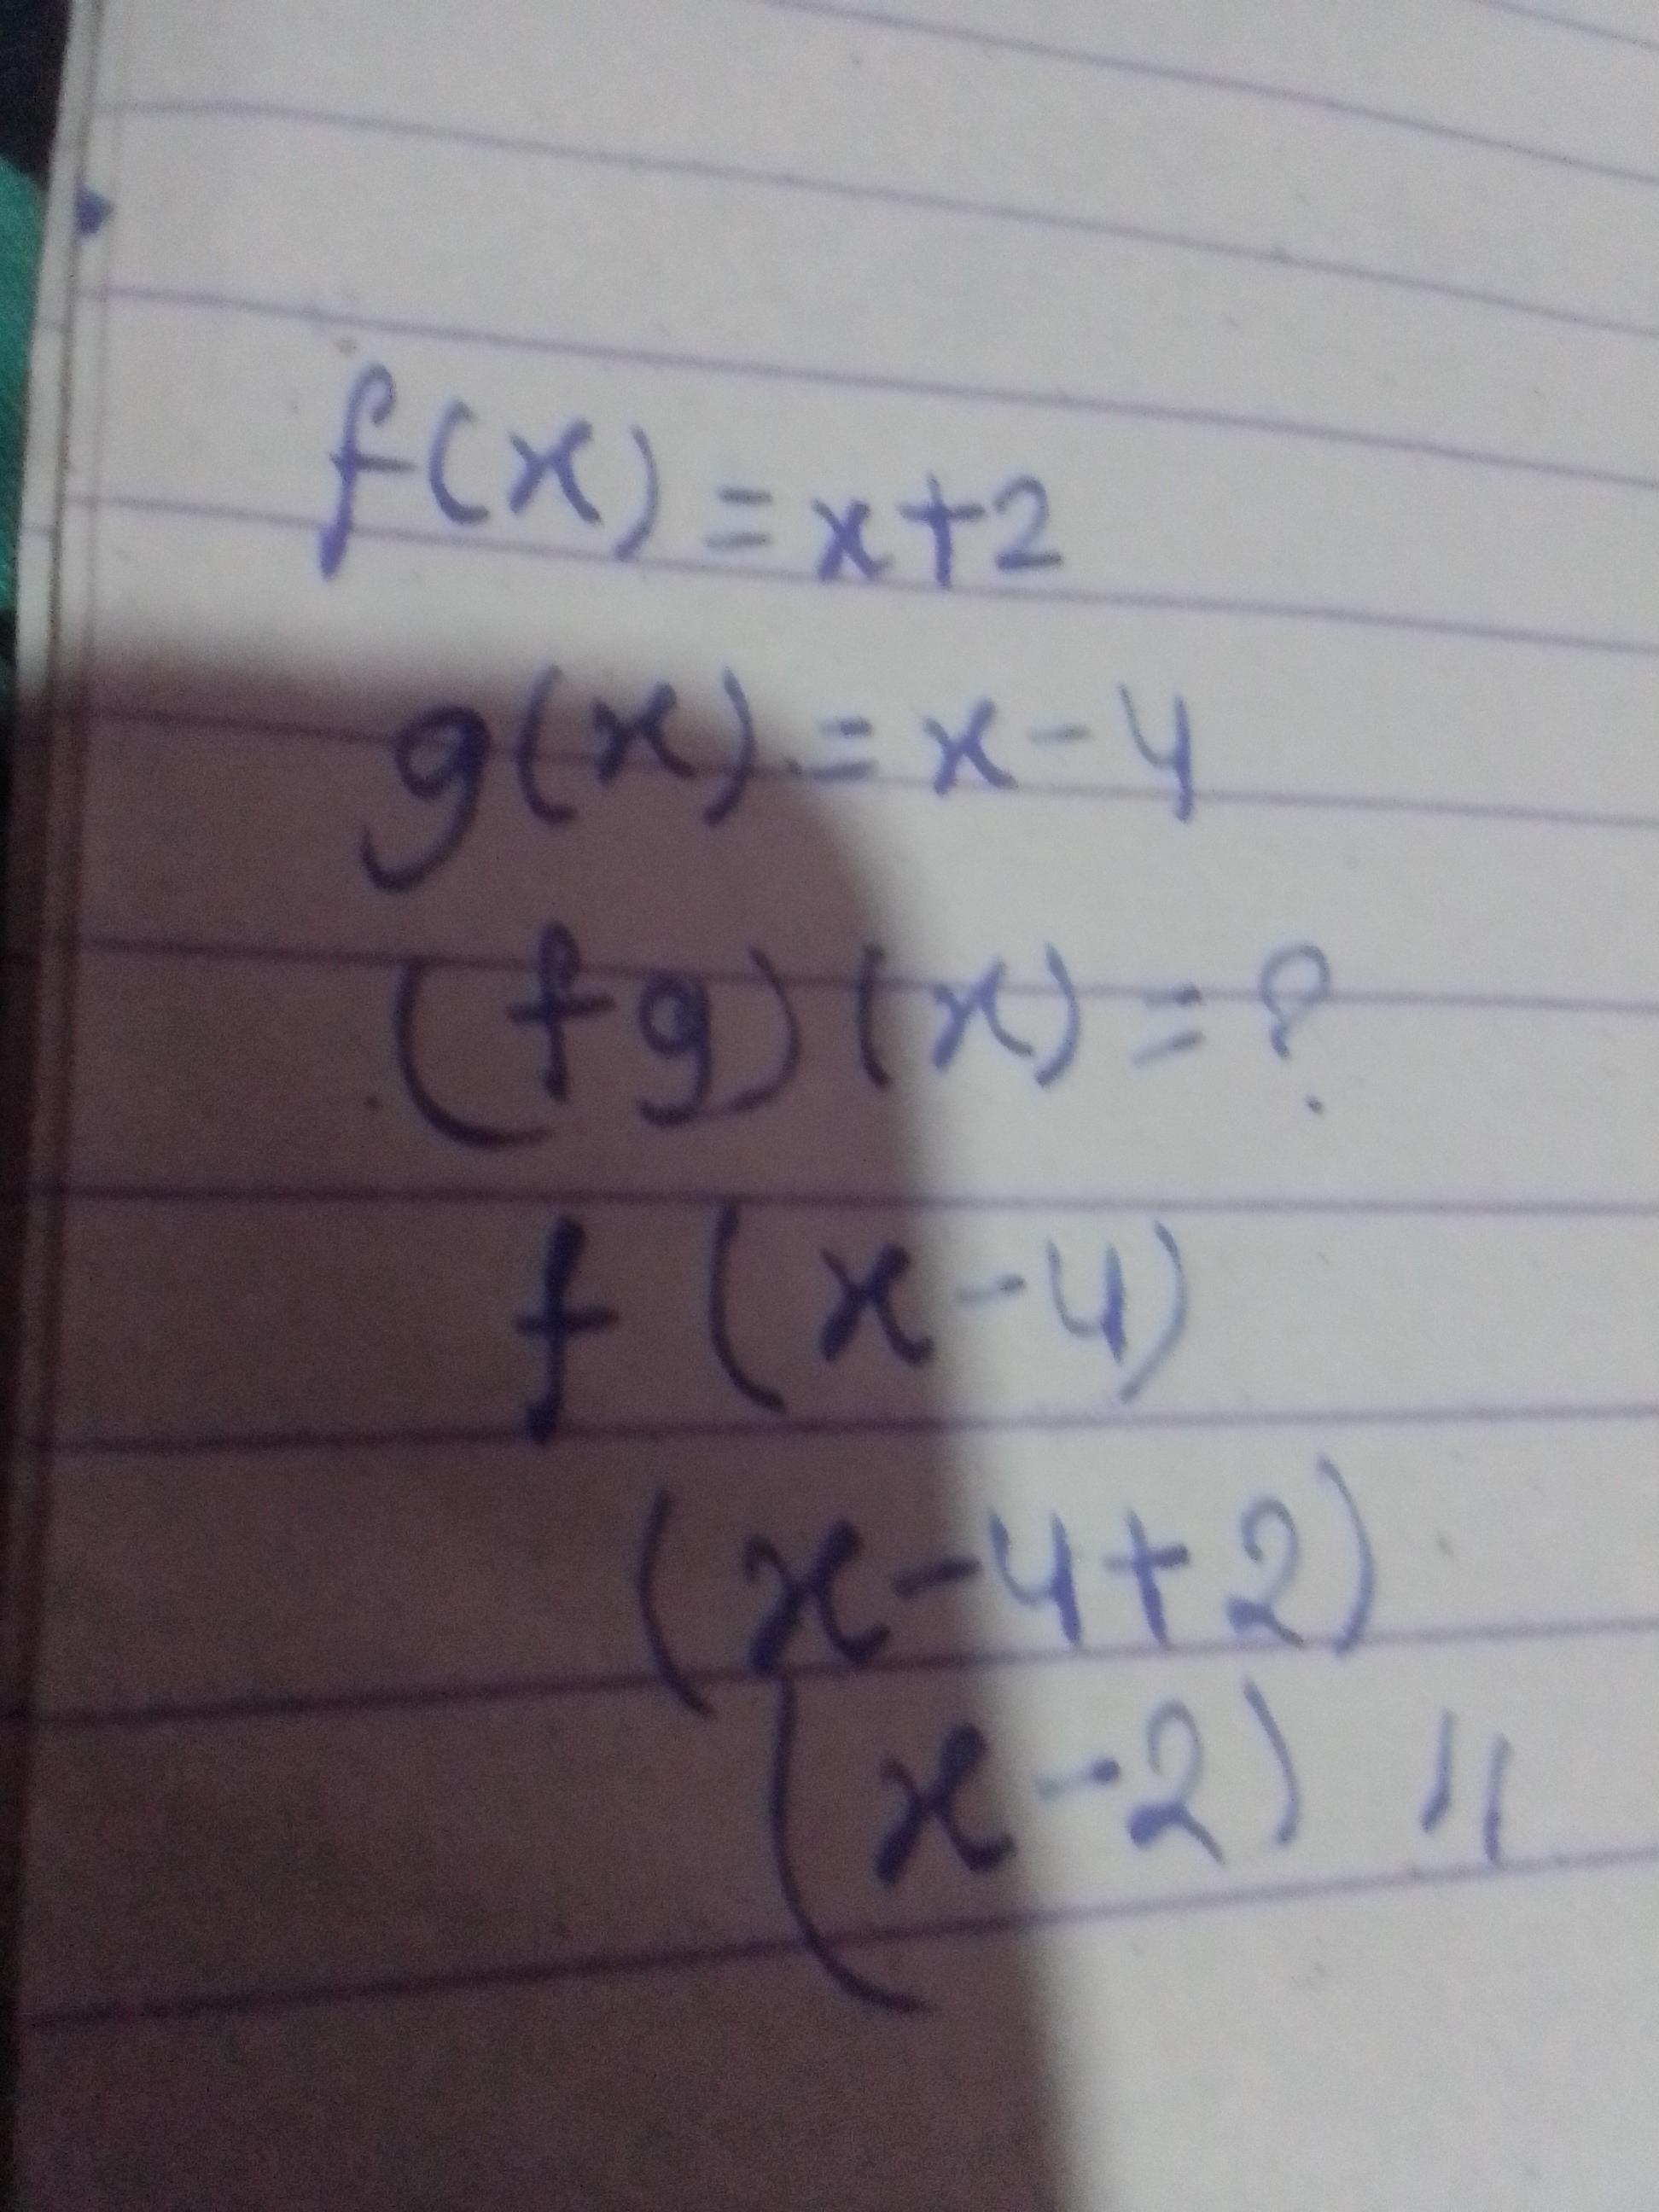 f(x) = x+2
g(x) = x-4
(fg)(x) = ?
f(x-4)
(x-4+2)
(x-2) //